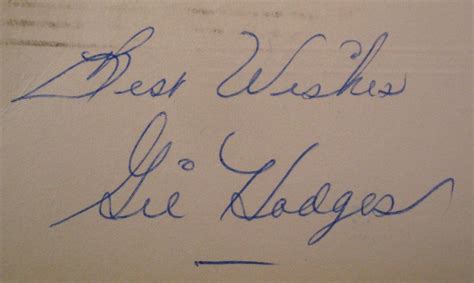 Best Wishes
Gil Hodges